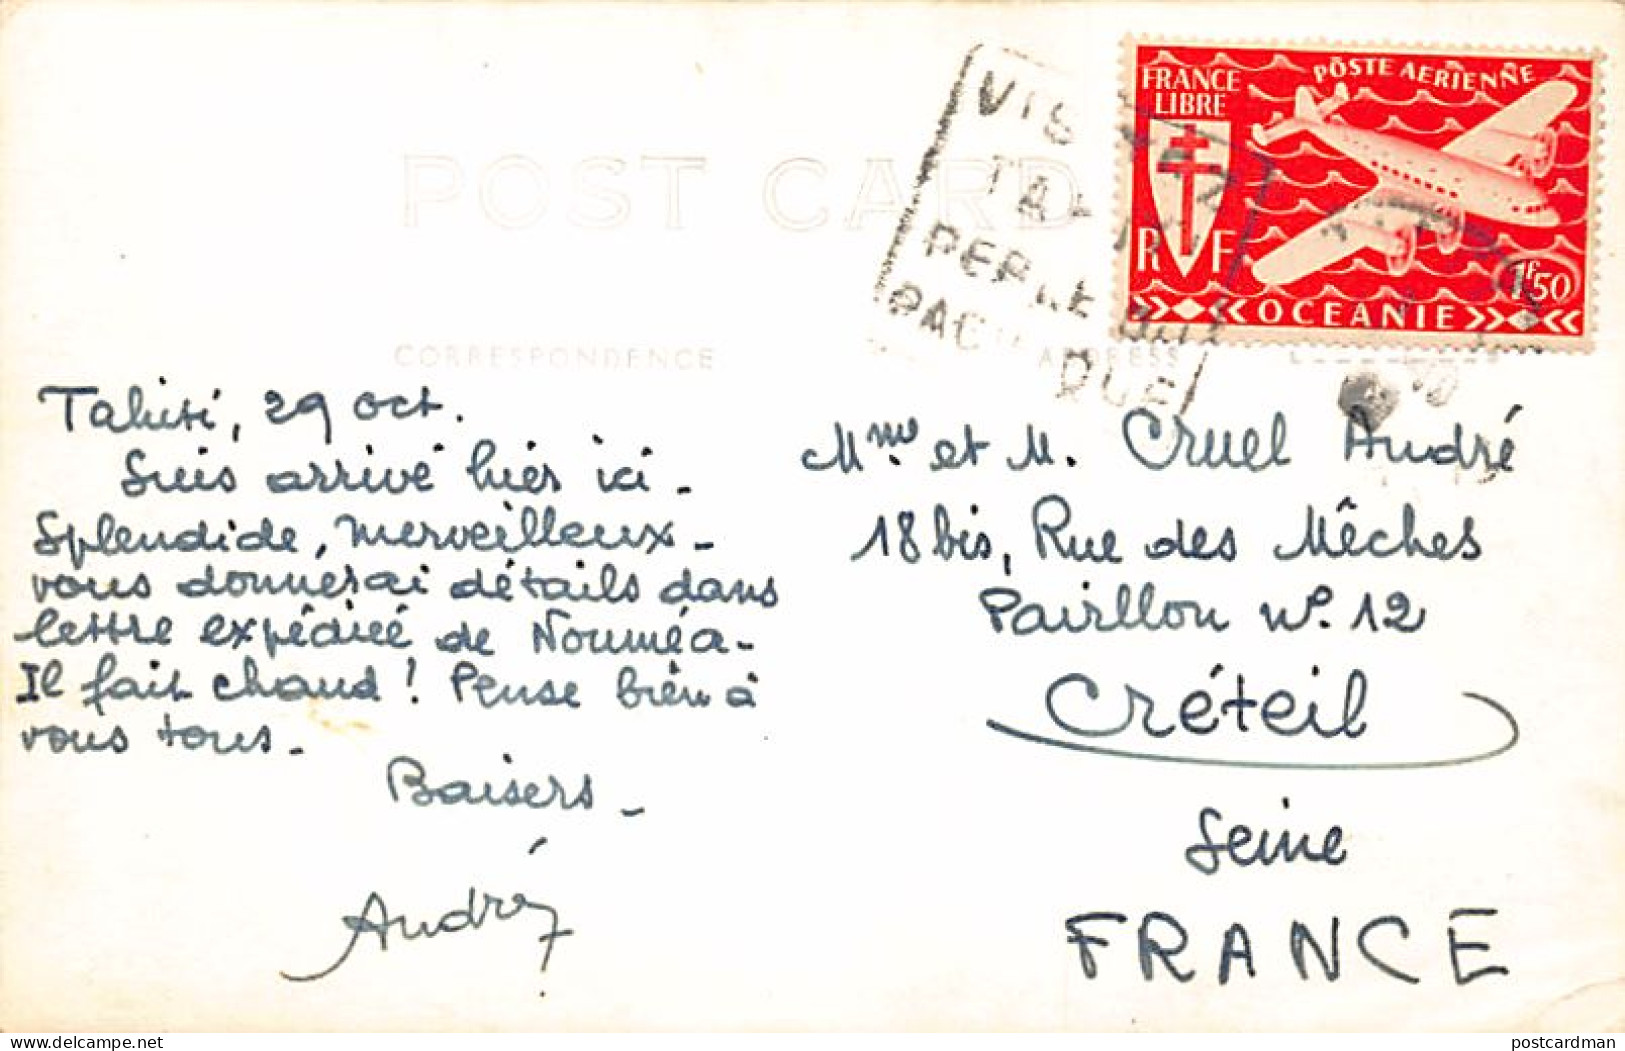 POST CARD
CORRESPONDENCE
ADDRESS
FRANCE LIBRE
POSTE AERIENNE
RF
1f50
OCEANIE
VISITEZ
TAHITI
PERLE DU
PACIFIQUE
Tahiti, 29 oct.
Suis arrivé hier ici -
Splendide, merveilleux -
vous donnerai détails dans
lettre expédiée de Nouméa -
Il fait chaud ! Pense bien à
vous tous -
Baisers -
André
Mme. et M. Cruel André
18 bis, Rue des Mêches
Pavillon No. 12
Créteil
Seine
FRANCE
postcardman